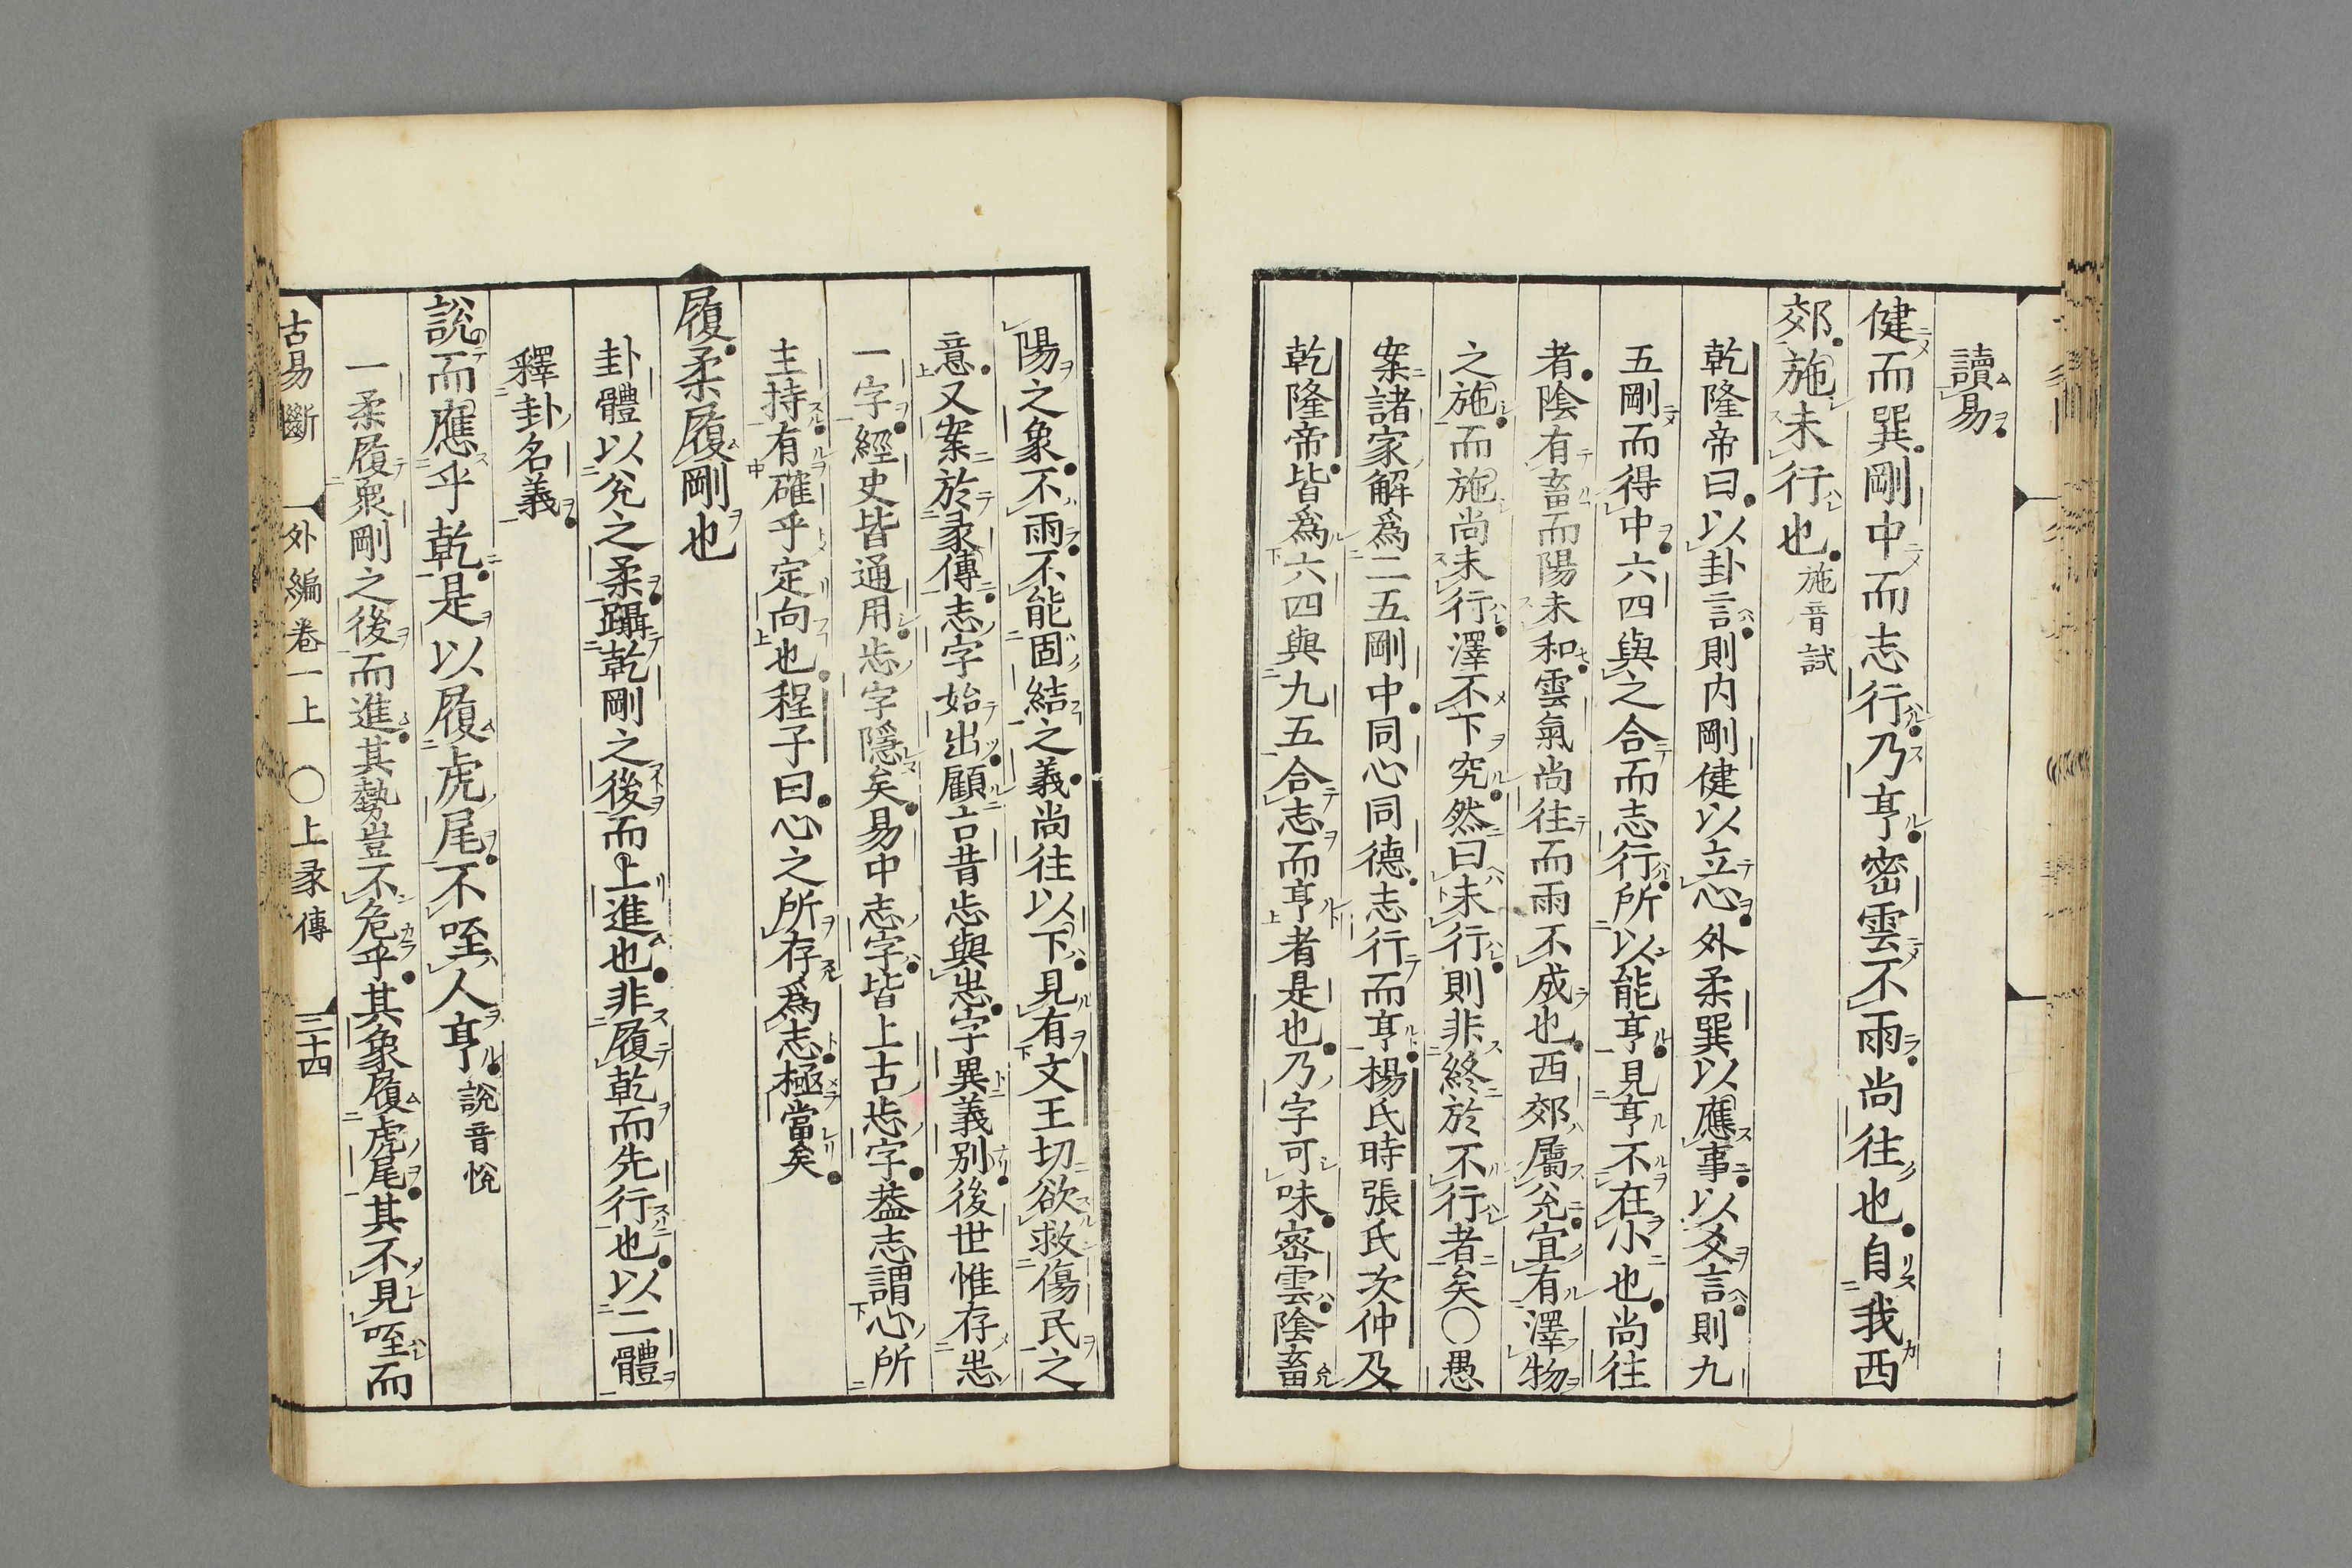 讀易
健而巽剛中而志行乃亨密雲不雨尚往也自我西
郊施未行也施音試
乾隆帝曰以卦言則内剛健以立心外柔巽以應事以爻言則九
五剛而得中六四與之合而志行所以能亨見亨不在小也尚往
者陰有畜而陽未和雲氣尚往而雨不成也西郊屬兊宜有澤物
之施而施尚未行澤不下究然曰未行則非終於不行者矣〇愚
案諸家解爲二五剛中同心同德志行而亨楊氏時張氏次仲及
乾隆帝皆爲六四與九五合志而亨者是也乃字可味密雲陰畜
陽之象不雨不能固結之義尚往以下見有文王切欲救傷民之
意又案於彖傳志字始出顧古昔㤅與㤅字異義別後世惟存㤅
一字經史皆通用㤅字隱矣易中志字皆上古㤅字葢志謂心所
主持有確乎定向也程子曰心之所存爲志極當矣
履柔履剛也
卦體以兊之柔躡乾剛之後而上進也非履乾而先行也以二體
釋卦名義
說而應乎乾是以履虎尾不咥人亨說音悅
一柔履衆剛之後而進其勢豈不危乎其象履虎尾其不見咥而
古易斷 外編卷一上 〇上彖傳 三十四